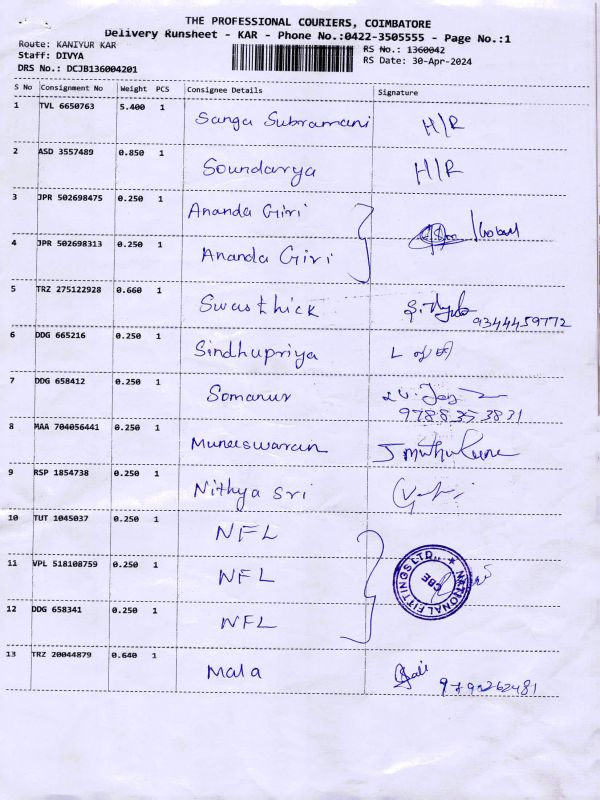 THE PROFESSIONAL COURIERS, COIMBATORE
Delivery Runsheet - KAR - Phone No.:0422-3505555 - Page No.:1
Route: KANIYUR KAR
Staff: DIVYA
DRS No.: DCJB136004201
RS No.: 1360042
RS Date: 30-Apr-2024
S No Consignment No Weight PCS Consignee Details Signature
1 TVL 6650763 5.400 1 Sanga Subramani H/R
2 ASD 3557489 0.850 1 Soundarya H/R
3 JPR 502698475 0.250 1 Ananda Giri
4 JPR 502698313 0.250 1 Ananda Giri
5 TRZ 275122928 0.660 1 Swasthick 9344459772
6 DDG 665216 0.250 1 Sindhupriya
7 DDG 658412 0.250 1 Somanur
9788353831
8 MAA 704056441 0.250 1 Muneeswaran
9 RSP 1854738 0.250 1 Nithya Sri
10 TUT 1045037 0.250 1 NFL
11 VPL 518108759 0.250 1 NFL
NATIONAL FITTINGS LTD., CBE
12 DDG 658341 0.250 1 NFL
13 TRZ 20044879 0.640 1 Mala